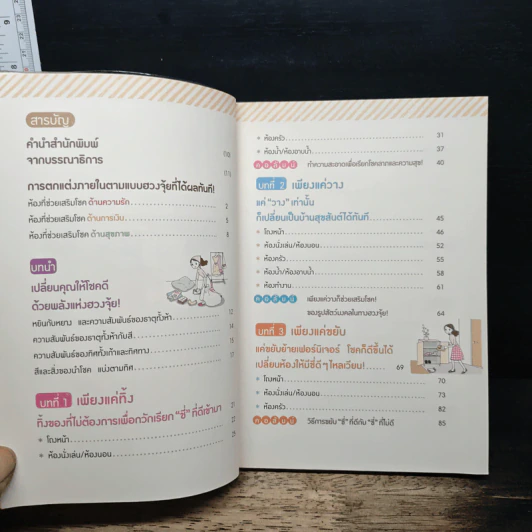 สารบัญ
คำนำสำนักพิมพ์
จากบรรณาธิการ
การตกแต่งภายในตามแบบฮวงจุ้ยที่ได้ผลทันที!
ห้องที่ช่วยเสริมโชค ด้านความรัก 2
ห้องที่ช่วยเสริมโชค ด้านการเงิน 5
ห้องที่ช่วยเสริมโชค ด้านสุขภาพ 8
บทนำ
เปลี่ยนคุณให้โชคดี
ด้วยพลังแห่งฮวงจุ้ย!
หยินกับหยาง และความสัมพันธ์ของธาตุทั้งห้า 12
ความสัมพันธ์ของธาตุทั้งห้ากับสี 14
ความสัมพันธ์ของทิศทั้งเก้าและทิศทาง 16
สีและสิ่งของนำโชค แบ่งตามทิศ 17
บทที่ 1 เพียงแค่ทิ้ง
ทิ้งของที่ไม่ต้องการเพื่อกวักเรียก "ชี่" ที่ดีเข้ามา 21
โถงหน้า 22
ห้องนั่งเล่น/ห้องนอน 25
ห้องครัว 31
ห้องน้ำ/ห้องอาบน้ำ 37
คอลัมน์ ทำความสะอาดเพื่อเรียกโชคลาภและความสุข! 40
บทที่ 2 เพียงแค่วาง
แค่ "วาง" เท่านั้น
ก็เปลี่ยนเป็นบ้านสุขสันต์ได้ทันที 45
โถงหน้า 46
ห้องนั่งเล่น/ห้องนอน 52
ห้องครัว 55
ห้องน้ำ/ห้องอาบน้ำ 58
ห้องทำงาน 61
คอลัมน์ เพียงแค่วางก็ช่วยเสริมโชค!
ของรูปสัตว์มงคลในทางฮวงจุ้ย! 64
บทที่ 3 เพียงแค่ขยับ
แค่ขยับย้ายเฟอร์นิเจอร์ โชคก็ดีขึ้นได้
เปลี่ยนห้องให้มีชี่ดีๆ ไหลเวียน! 69
โถงหน้า 70
ห้องนั่งเล่น/ห้องนอน 73
ห้องครัว 82
คอลัมน์ วิธีการขยับ "ชี่" ที่ดีกับ "ชี่" ที่ไม่ดี 85